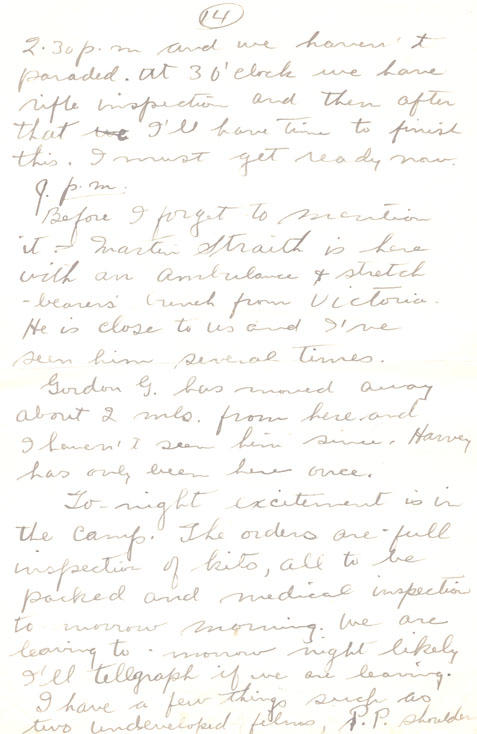 14
2.30 p.m and we haven't
paraded. At 3 O'clock we have
rifle inspection and then after
that we I'll have time to finish
this. I must get ready now.
9. p.m.
Before I forget to mention
it - Martin Straith is here
with an ambulance & stretch
-bearers' bunch from Victoria.
He is close to us and I've
seen him several times.
Gordon G. has moved away
about 2 mls. from here and
I haven't seen him since. Harvey
has only been here once.
To-night excitement is in
the camp. The orders are - full
inspection of kits, all to be
packed and medical inspection
to-morrow morning. We are
leaving to-morrow night likely
I'll tellgraph if we are leaving.
I have a few things such as
two undeveloped films, P.P. shoulder